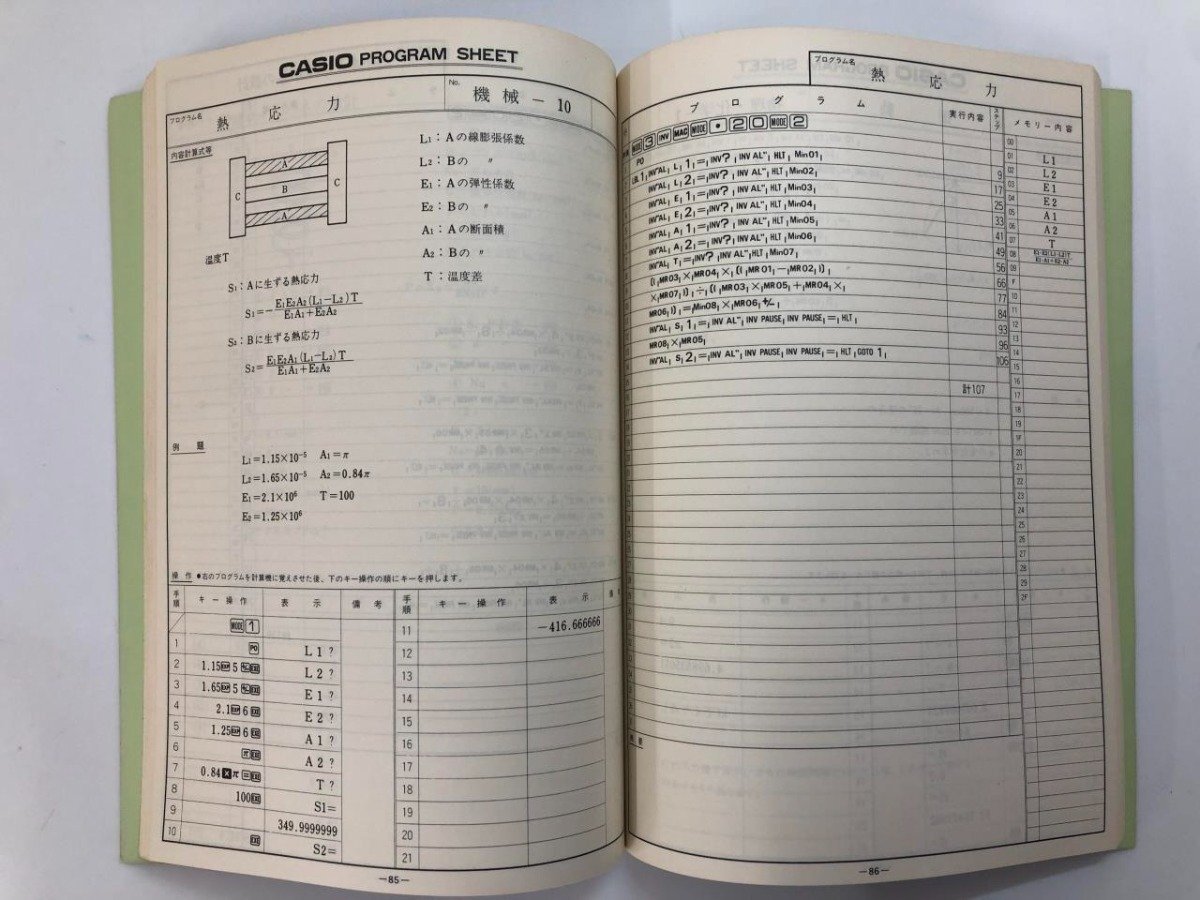 CASIO PROGRAM SHEET
プログラム名
熱応力
No.
機械－10
内容計算式等
A
C
B
C
A
温度T
L1：Aの線膨張係数
L2：Bの 〃
E1：Aの弾性係数
E2：Bの 〃
A1：Aの断面積
A2：Bの 〃
T：温度差
S1：Aに生ずる熱応力
S1=-E1E2A2(L1-L2)T
E1A1+E2A2
S2：Bに生ずる熱応力
S2=E1E2A1(L1-L2)T
E1A1+E2A2
例題
L1=1.15×10-5 A1=π
L2=1.65×10-5 A2=0.84π
E1=2.1×106 T=100
E2=1.25×106
操作 ●右のプログラムを計算機に覚えさせた後、下のキー操作の順にキーを押します。
手順 キー操作 表示 備考 手順 キー操作 表示
MODE 1 11 -416.666666
1 P0 L1? 12
2 1.15EXP 5 +/- EXE L2? 13
3 1.65EXP 5 +/- EXE E1? 14
4 2.1EXP 6 EXE E2? 15
5 1.25EXP 6 EXE A1? 16
6 π EXE A2? 17
7 0.84×π = EXE T? 18
8 100EXE S1= 19
9 349.9999999 20
10 EXE S2= 21
－85－
プログラム名
熱応力
プログラム 実行内容 ステップ メモリー内容
MODE 3 INV MAC MODE ・ 2 0 MODE 2
P0
LBL 1 INV"AL L 1 = INV? INV AL" HLT Min01 9
INV"AL L 2 = INV? INV AL" HLT Min02 17
INV"AL E 1 = INV? INV AL" HLT Min03 25
INV"AL E 2 = INV? INV AL" HLT Min04 33
INV"AL A 1 = INV? INV AL" HLT Min05 41
INV"AL A 2 = INV? INV AL" HLT Min06 49
INV"AL T = INV? INV AL" HLT Min07 56
[( MR03 × MR04 × [( MR01 - MR02 )] 66
× MR07 )] ÷ [( MR03 × MR05 + MR04 × 77
MR06 )] = Min08 × MR06 +/- 84
INV"AL S 1 = INV AL" INV PAUSE INV PAUSE = HLT 93
MR08 × MR05 96
INV"AL S 2 = INV AL" INV PAUSE INV PAUSE = HLT GOTO 1 106
計107
00
01 L1
02 L2
03 E1
04 E2
05 A1
06 A2
07 T
08 E1・E2(L1-L2)T
E1・A1+E2・A2
09
F
10
11
12
13
14
15
16
17
18
19
1F
20
21
22
23
24
25
26
27
28
29
2F
－86－